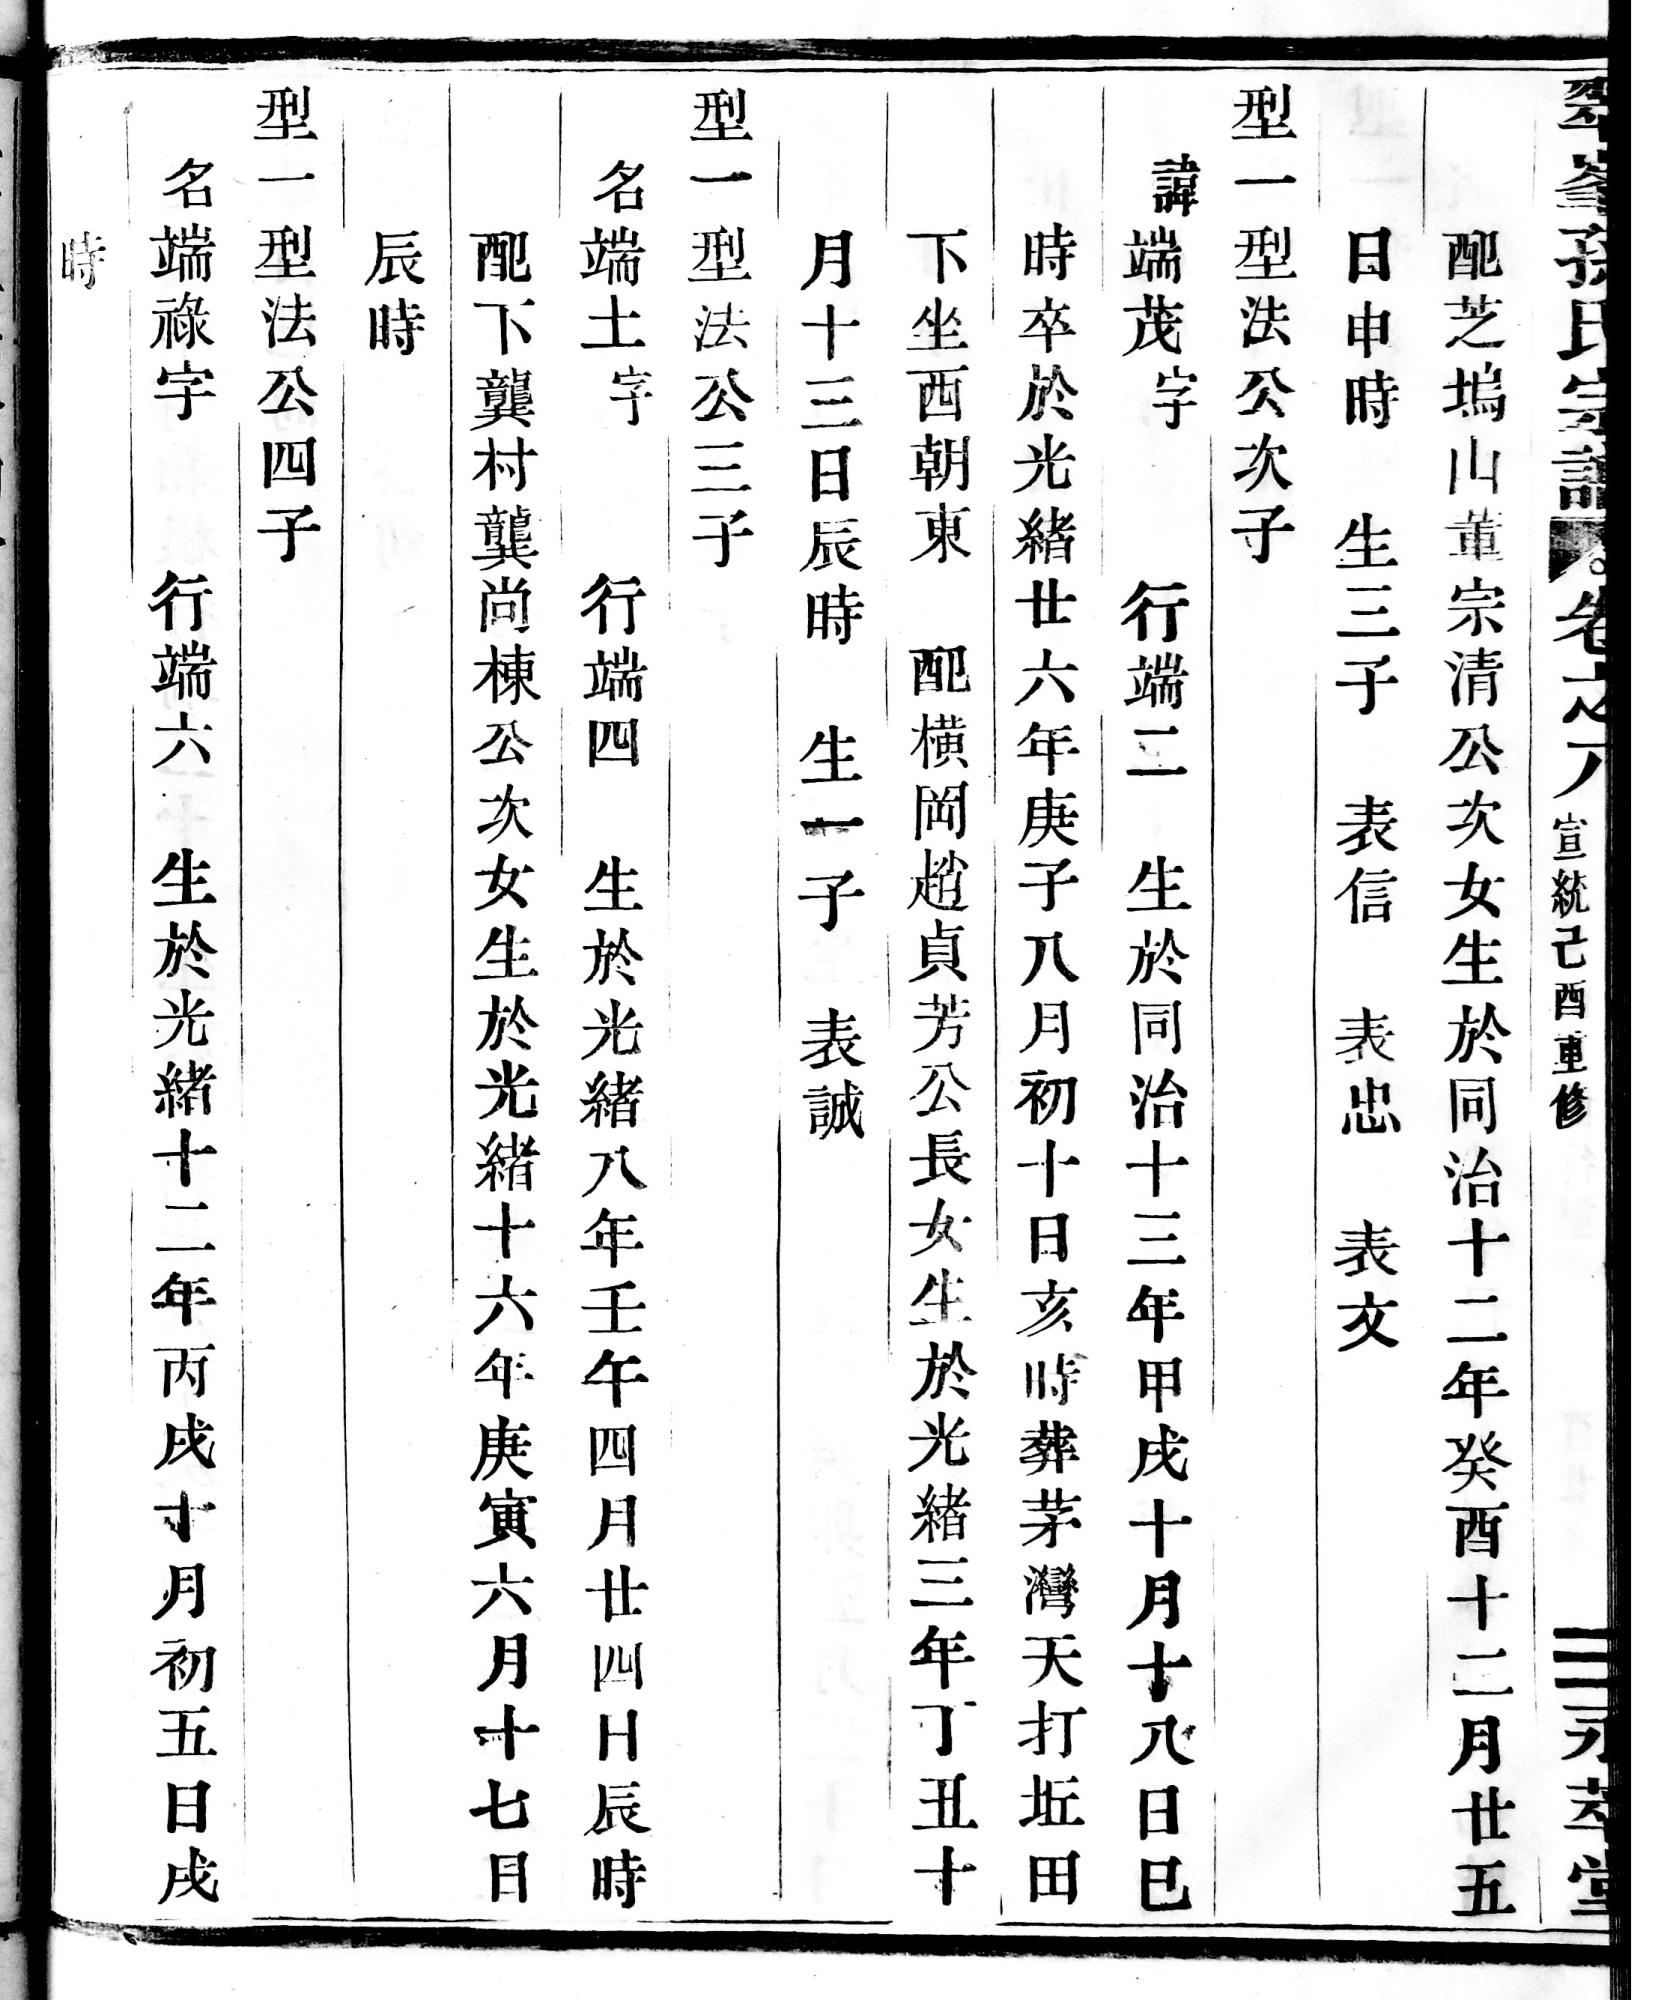 翠峯孫氏宗譜 卷之八 宣統己酉重修 三 永萃堂
配芝塢山董宗清公次女生於同治十二年癸酉十二月廿五
日申時 生三子 表信 表忠 表文
型一型法公次子
諱端茂字 行端二 生於同治十三年甲戌十月十八日巳
時卒於光緒廿六年庚子八月初十日亥時葬茅灣天打坵田
下坐西朝東 配橫岡趙貞芳公長女生於光緒三年丁丑十
月十三日辰時 生一子 表誠
型一型法公三子
名端土字 行端四 生於光緒八年壬午四月廿四日辰時
配下龔村龔尚棟公次女生於光緒十六年庚寅六月十七日
辰時
型一型法公四子
名端祿字 行端六 生於光緒十二年丙戌十月初五日戌
時